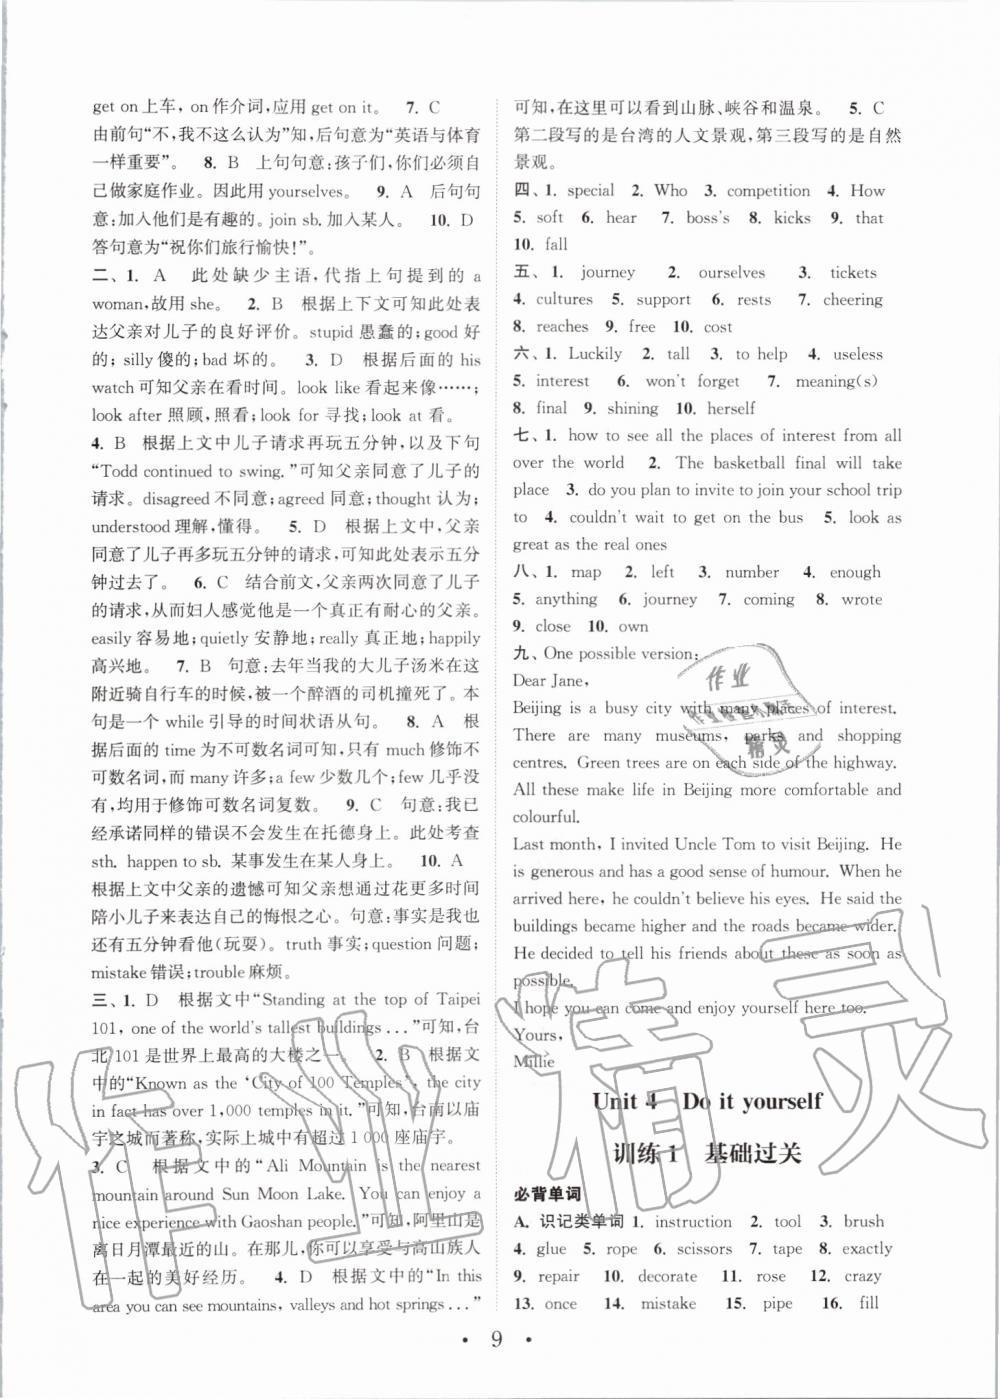 get on 上车，on 作介词，应用 get on it。 7. C
由前句“不，我不这么认为”知，后句意为“英语与体育
一样重要”。 8. B 上句句意：孩子们，你们必须自
己做家庭作业。因此用 yourselves。 9. A 后句句
意：加入他们是有趣的。join sb. 加入某人。 10. D
答句意为“祝你们旅行愉快！”。
二、1. A 此处缺少主语，代指上句提到的 a
woman，故用 she。 2. B 根据上下文可知此处表
达父亲对儿子的良好评价。stupid 愚蠢的；good 好
的；silly 傻的；bad 坏的。 3. D 根据后面的 his
watch 可知父亲在看时间。look like 看起来像……；
look after 照顾，照看；look for 寻找；look at 看。
4. B 根据上文中儿子请求再玩五分钟，以及下句
“Todd continued to swing.”可知父亲同意了儿子的
请求。disagreed 不同意；agreed 同意；thought 认为；
understood 理解，懂得。 5. D 根据上文中，父亲
同意了儿子再多玩五分钟的请求，可知此处表示五分
钟过去了。 6. C 结合前文，父亲两次同意了儿子
的请求，从而妇人感觉他是一个真正有耐心的父亲。
easily 容易地；quietly 安静地；really 真正地；happily
高兴地。 7. B 句意：去年当我的大儿子汤米在这
附近骑自行车的时候，被一个醉酒的司机撞死了。本
句是一个 while 引导的时间状语从句。 8. A 根
据后面的 time 为不可数名词可知，只有 much 修饰不
可数名词，而 many 许多；a few 少数几个；few 几乎没
有，均用于修饰可数名词复数。 9. C 句意：我已
经承诺同样的错误不会发生在托德身上。此处考查
sth. happen to sb. 某事发生在某人身上。 10. A
根据上文中父亲的遗憾可知父亲想通过花更多时间
陪小儿子来表达自己的悔恨之心。句意：事实是我也
还有五分钟看他(玩耍)。truth 事实；question 问题；
mistake 错误；trouble 麻烦。
三、1. D 根据文中“Standing at the top of Taipei
101, one of the world's tallest buildings ...”可知，台
北 101 是世界上最高的大楼之一。 2. B 根据文
中的“Known as the ‘City of 100 Temples’, the city
in fact has over 1,000 temples in it.”可知，台南以庙
宇之城而著称，实际上城中有超过 1 000 座庙宇。
3. C 根据文中的“Ali Mountain is the nearest
mountain around Sun Moon Lake. You can enjoy a
nice experience with Gaoshan people.”可知，阿里山是
离日月潭最近的山。在那儿，你可以享受与高山族人
在一起的美好经历。 4. D 根据文中的“In this
area you can see mountains, valleys and hot springs ...”
可知，在这里可以看到山脉、峡谷和温泉。 5. C
第二段写的是台湾的人文景观，第三段写的是自然
景观。
四、1. special 2. Who 3. competition 4. How
5. soft 6. hear 7. boss's 8. kicks 9. that
10. fall
五、1. journey 2. ourselves 3. tickets
4. cultures 5. support 6. rests 7. cheering
8. reaches 9. free 10. cost
六、1. Luckily 2. tall 3. to help 4. useless
5. interest 6. won't forget 7. meaning(s)
8. final 9. shining 10. herself
七、1. how to see all the places of interest from all
over the world 2. The basketball final will take
place 3. do you plan to invite to join your school trip
to 4. couldn't wait to get on the bus 5. look as
great as the real ones
八、1. map 2. left 3. number 4. enough
5. anything 6. journey 7. coming 8. wrote
9. close 10. own
九、One possible version:
Dear Jane,
Beijing is a busy city with many places of interest.
There are many museums, parks and shopping
centres. Green trees are on each side of the highway.
All these make life in Beijing more comfortable and
colourful.
Last month, I invited Uncle Tom to visit Beijing. He
is generous and has a good sense of humour. When he
arrived here, he couldn't believe his eyes. He said the
buildings became higher and the roads became wider.
He decided to tell his friends about these as soon as
possible.
I hope you can come and enjoy yourself here too.
Yours,
Millie
Unit 4 Do it yourself
训练 1 基础过关
必背单词
A. 识记类单词 1. instruction 2. tool 3. brush
4. glue 5. rope 6. scissors 7. tape 8. exactly
9. repair 10. decorate 11. rose 12. crazy
13. once 14. mistake 15. pipe 16. fill
• 9 •
作业精灵
作业
精灵